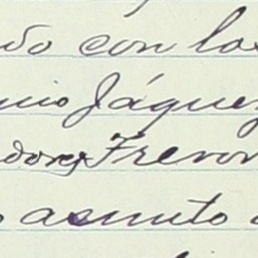 do con las
nio Jáquez
dores Trevon
asunto